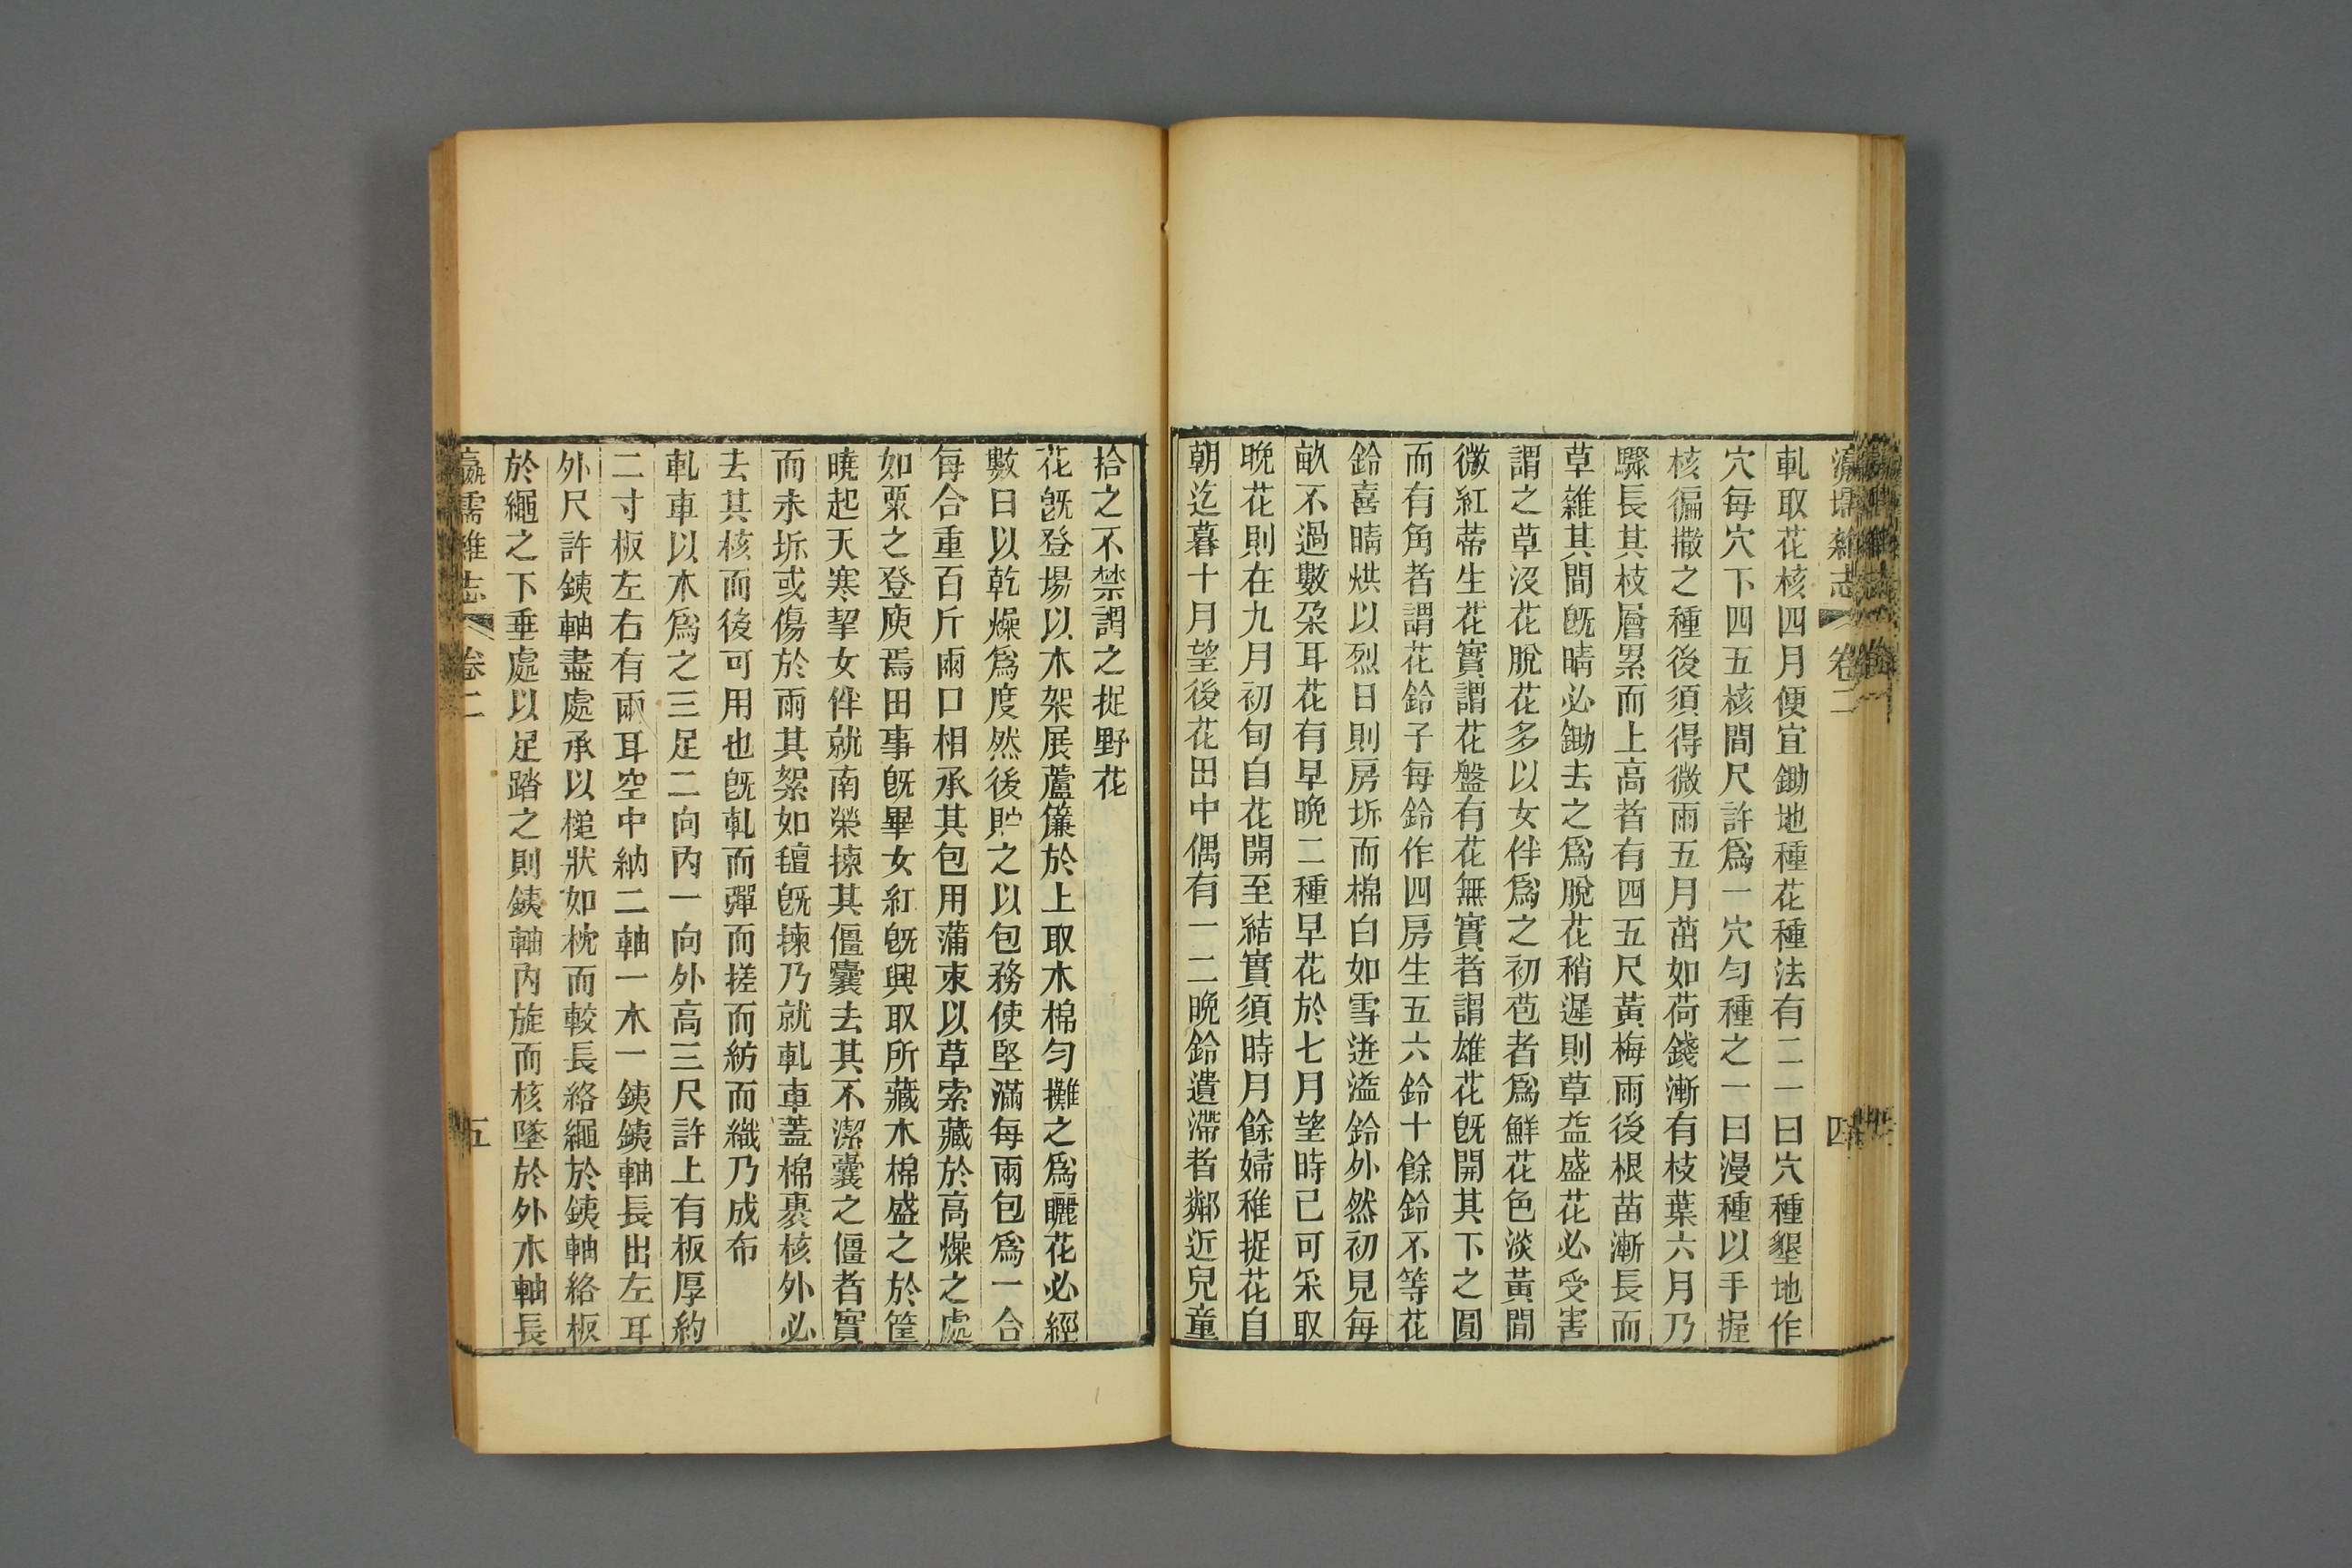 瀛壖雜志 卷二 四
軋取花核四月便宜鋤地種花種法有二一曰穴種墾地作
穴每穴下四五核間尺許爲一穴勻種之一曰漫種以手握
核徧撒之種後須得微雨五月茁如荷錢漸有枝葉六月乃
驟長其枝層累而上高者有四五尺黃梅雨後根苗漸長而
草雜其間旣晴必鋤去之爲脫花稍遲則草益盛花必受害
謂之草沒花脫花多以女伴爲之初苞者爲鮮花色淡黃間
微紅蒂生花實謂花盤有花無實者謂雄花旣開其下之圓
而有角者謂花鈴子每鈴作四房生五六鈴十餘鈴不等花
鈴喜晴烘以烈日則房坼而棉白如雪迸溢鈴外然初見每
畝不過數朶耳花有早晚二種早花於七月望時已可采取
晚花則在九月初旬自花開至結實須時月餘婦稚捉花自
朝迄暮十月望後花田中偶有一二晚鈴遺滯者鄰近兒童
拾之不禁謂之捉野花
花旣登場以木架展蘆簾於上取木棉勻攤之爲曬花必經
數日以乾燥爲度然後貯之以包務使堅滿每兩包爲一合
每合重百斤兩口相承其包用蒲束以草索藏於高燥之處
如粟之登庾焉田事旣畢女紅旣興取所藏木棉盛之於筐
曉起天寒挈女伴就南榮揀其僵囊去其不潔囊之僵者實
而未坼或傷於雨其絮如氊旣揀乃就軋車蓋棉裹核外必
去其核而後可用也旣軋而彈而搓而紡而織乃成布
軋車以木爲之三足二向內一向外高三尺許上有板厚約
二寸板左右有兩耳空中納二軸一木一銕銕軸長出左耳
外尺許銕軸盡處承以槌狀如枕而較長絡繩於銕軸絡板
於繩之下垂處以足踏之則銕軸內旋而核墜於外木軸長
瀛壖雜志 卷二 五